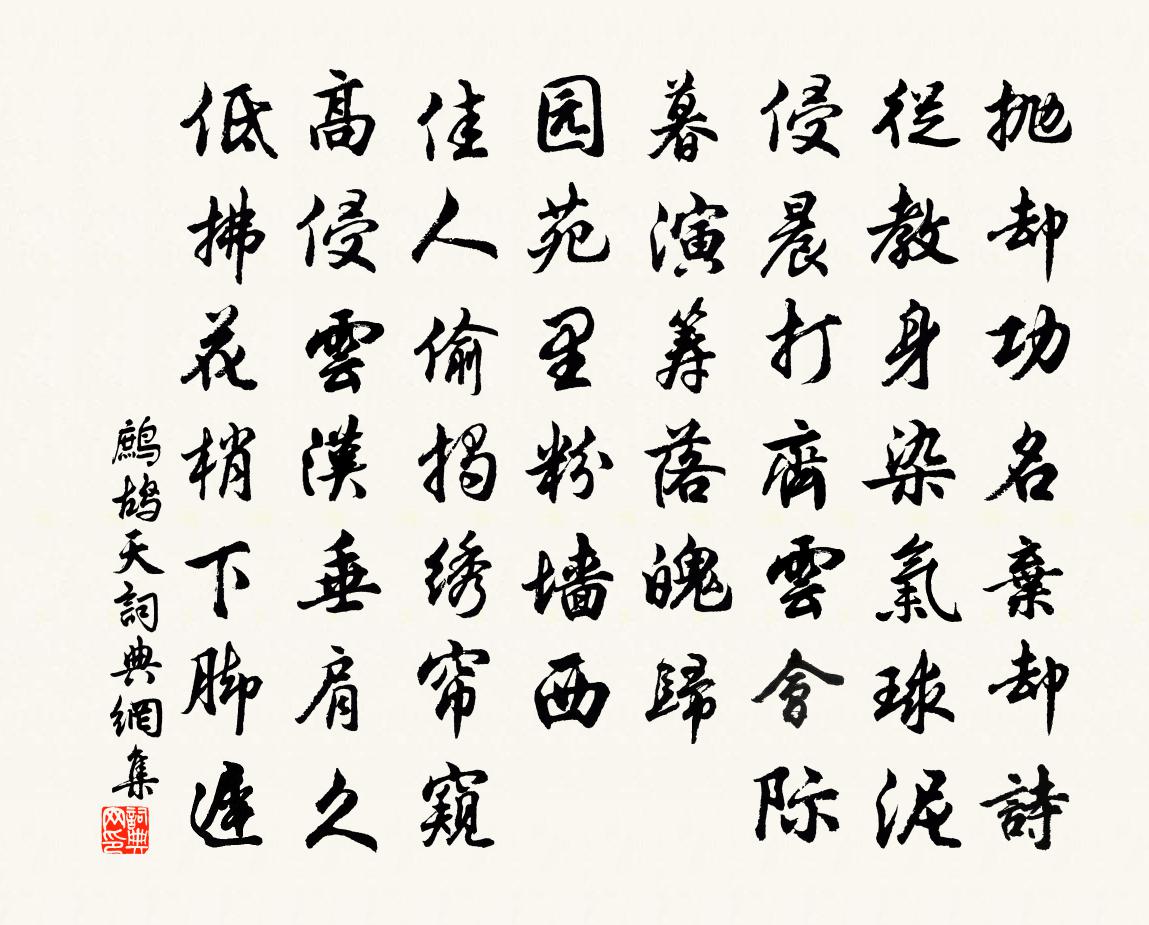 抛却功名棄却詩
從教身染氣球泥
侵晨打齊雲會际
暮演筹落魄歸
园苑里粉墙西
佳人偷揭绣帘窥
高侵雲漢垂肩久
低拂花梢下脚遲
鷓鴣天詞典網集
詞典网印